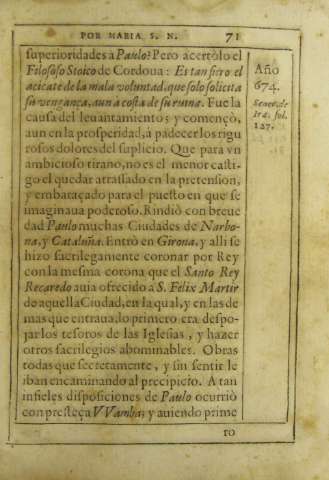 POR MARIA S. N. 71
superioridades a Paulo? Pero acertòlo el
Filosofo Stoico de Cordoua: Es tan fiero el
acicate de la mala voluntad, que solo solicita
su vengança, aun a costa de su ruina. Fue la
causa del leuantamiento; y començò,
aun en la prosperidad, á padecer los rigu
rosos dolores del suplicio. Que para vn
ambicioso tirano, no es el menor casti-
go el quedar atrasſado en la pretension,
y embaraçado para el puesto en que se
imaginaua poderoso. Rindiò con breue
dad Paulo muchas Ciudades de Narbo-
na, y Cataluña. Entrò en Girona, y alli se
hizo sacrilegamente coronar por Rey
con la mesma corona que el Santo Rey
Recaredo auia ofrecido a S. Felix Martir
de aquella Ciudad, en la qual, y en las de
mas que entraua, lo primero era despo-
jar los tesoros de las Iglesias, y hazer
otros sacrilegios abominables. Obras
todas que secretamente, y sin sentir le
iban encaminando al precipicio. A tan
infieles disposiciones de Paulo ocurriò
con presteça VVamba; y auiendo prime
ro
Año
674.
Senec. de
Ira. fol.
127.